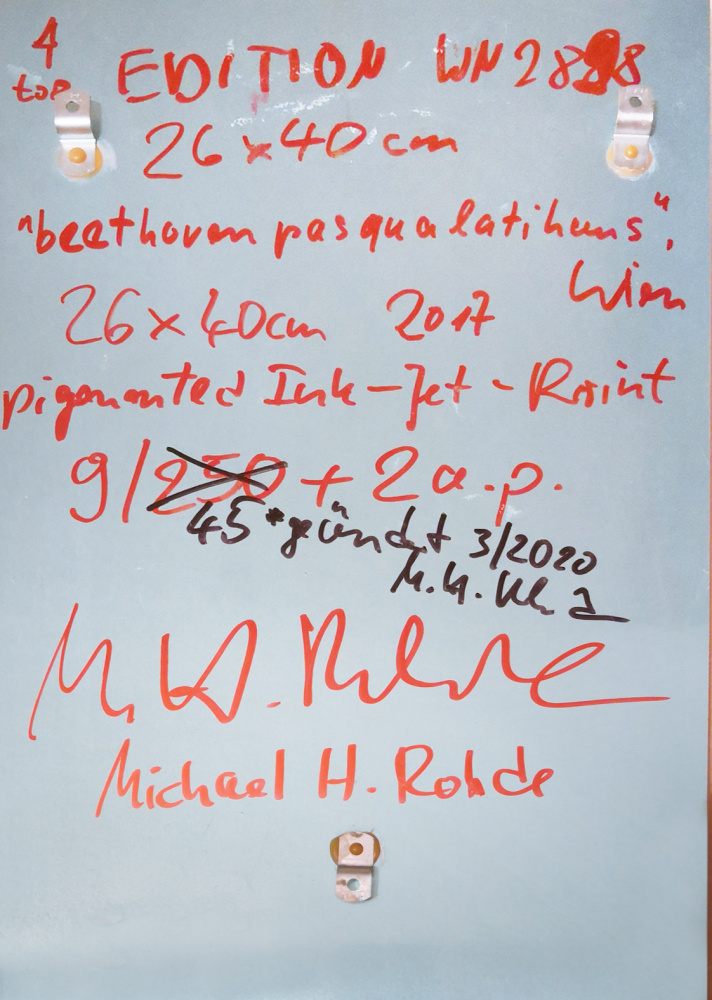 4
top EDITION WN 2888
26 x 40 cm
"beethoven pasqualatihaus",
Wien
26 x 40cm 2017
pigmented Ink-Jet-Print
9/250 + 2 a.p.
45 * geändert 3/2020
M.H.
M. H. Rohde
Michael H. Rohde